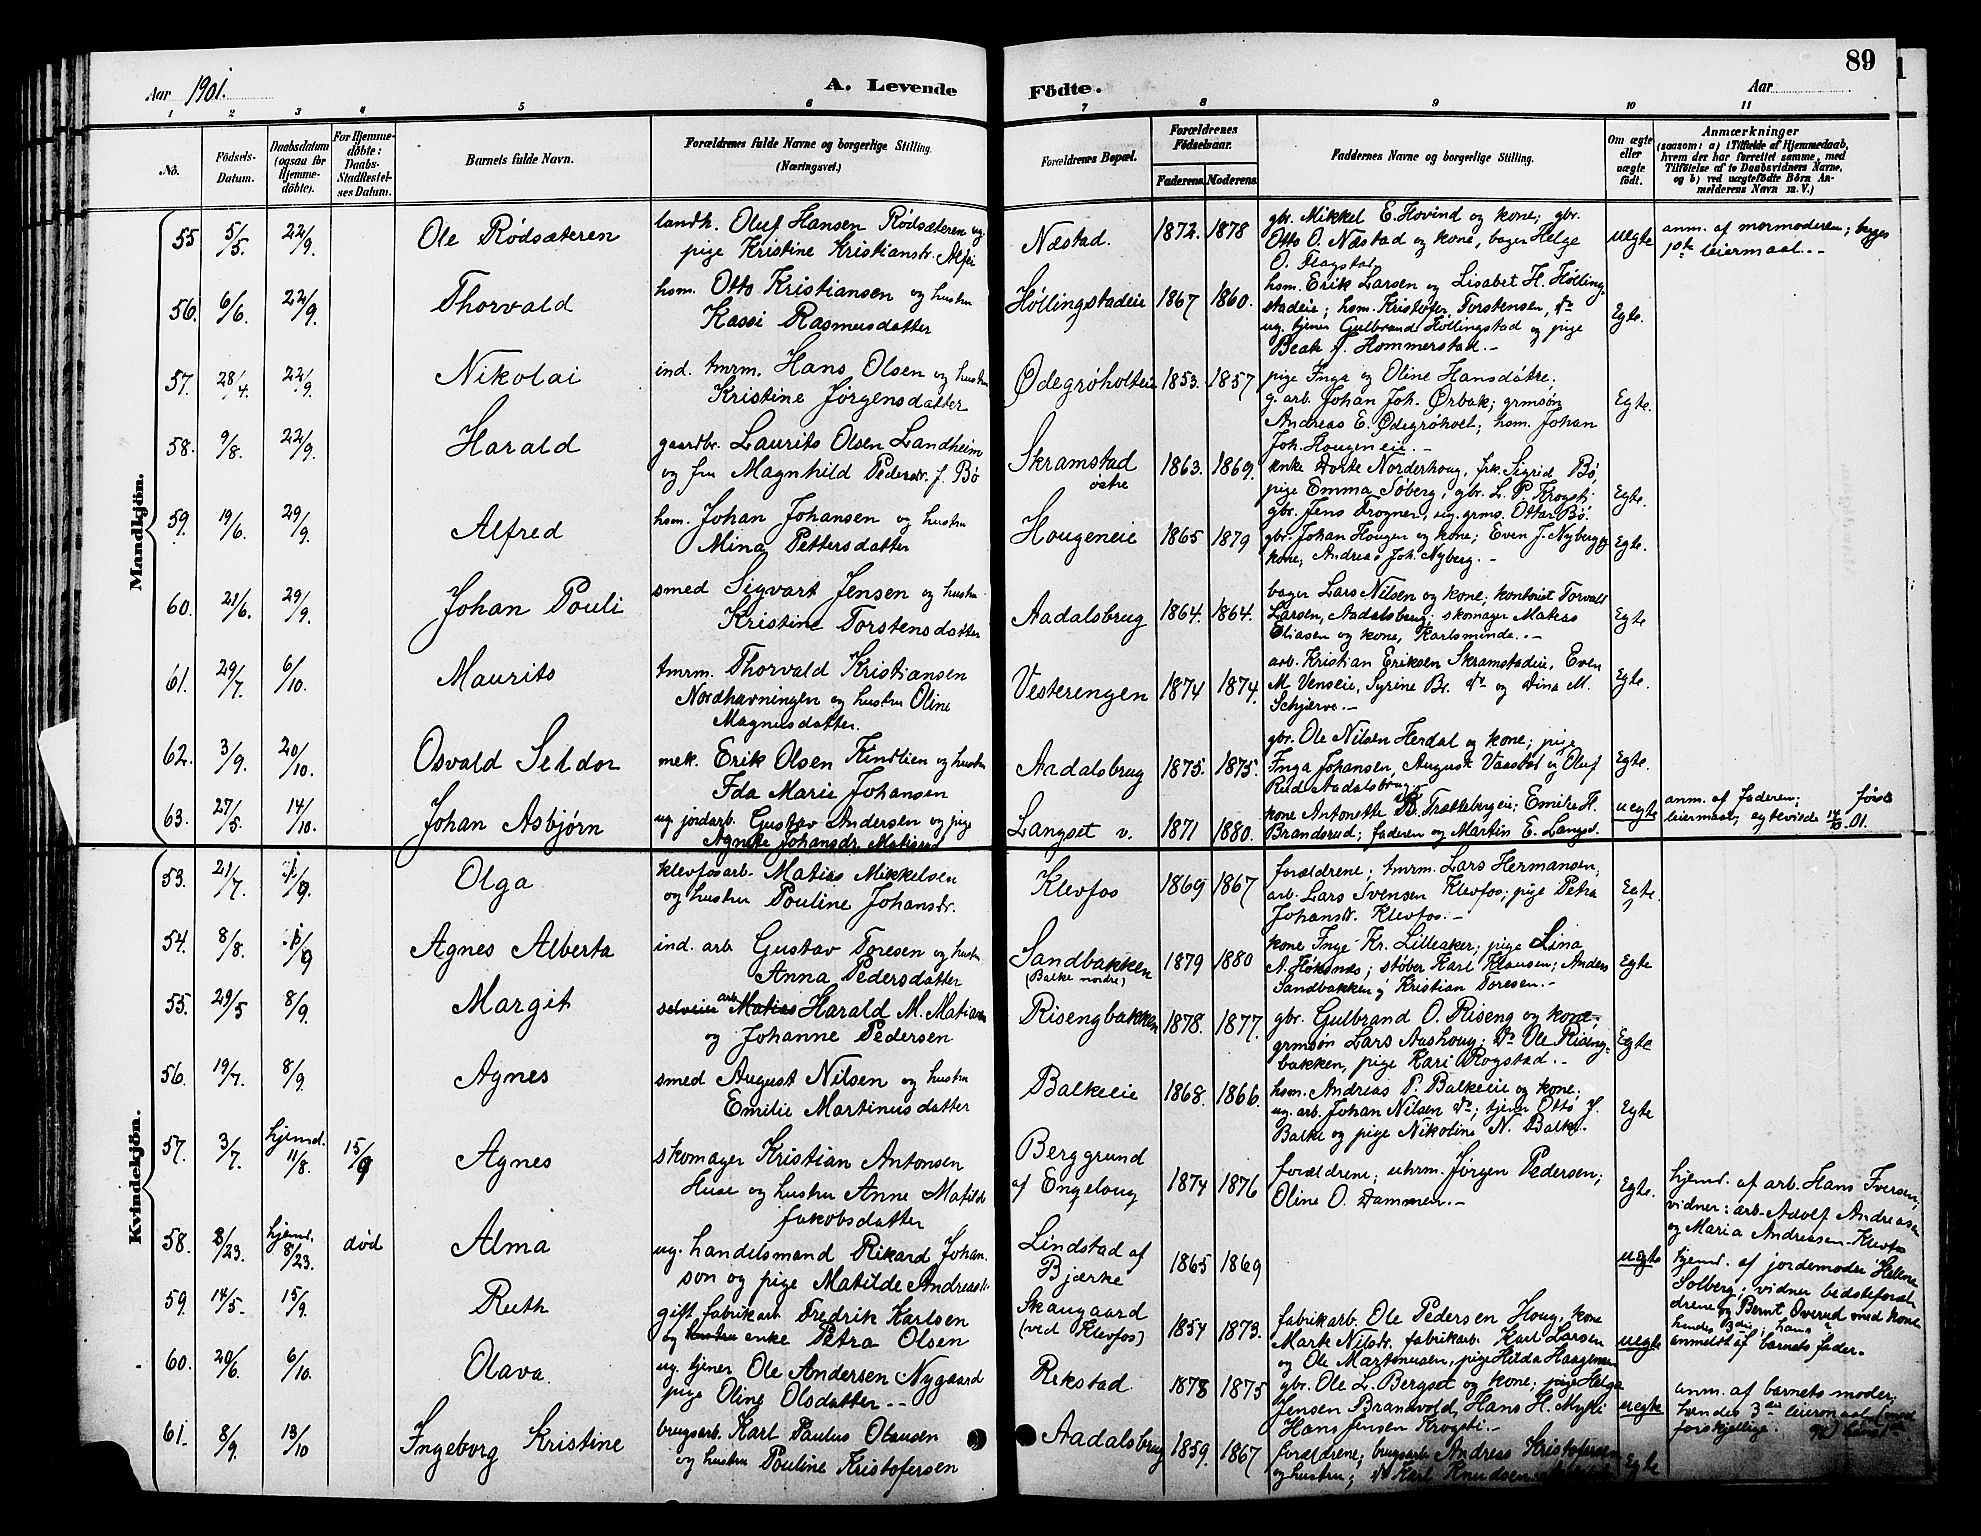 89
Aar 1901.
A. Levende Födte.
Aar
1 2 3 4 5 6 7 8 9 10 11
No.
Födsels-Datum.
Daabsdatum (ogsaa for Hjemmedöbte).
For Hjemmedöbte: Daabs-Stadfestelses Datum.
Barnets fulde Navn.
Forældrenes fulde Navne og borgerlige Stilling. (Næringsvei.)
Forældrenes Bopæl.
Forældrenes Födselsaar.
Faderens. Moderens.
Faddernes Navne og borgerlige Stilling.
Om ægte eller uægte födt.
Anmærkninger (saasom: a) i Tilfælde af Hjemmedaab, hvem der har forrettet samme, med Tilföielse af to Daabsvidners Navne, og b) ved uægtefödte Börn Anmelderens Navn m. V.)
Mandkjön.
55 5/5. 22/9. Ole Rödsæteren
landh. Oluf Hansen Rödsæteren ug.
pige Kristine Kristiansdr.
Næstad. 1872. 1878
gbr. Mikkel E. Hovind og kone; gbr.
Otto O. Næstad og kone, bager Helge
O. Flagstad
uegte
anm. af mormoderen; begges
1ste leiermaal. -
56. 6/6. 22/9. Thorvald
hsm. Otto Kristiansen og hustru
Kassi Rasmusdatter
Höllingstadeie 1867 1860.
hsm. Erik Larsen og Lisabet H. Hölling-
stadeie; hsm. Kristofer Torstensen, do
ug. tjener Gulbrand Höllingstad og pige
Beate J. Hommerstad. -
Egte.
57. 28/4. 22/9. Nikolai
ind. tmrm. Hans Olsen og hustru
Kristine Jörgensdatter
Ödegröholteie 1853. 1857
pige Inga og Oline Hansdötre;
g. arb. Johan Joh. Örbak; grmsön
Andreas E. Ödegröholt; hsm. Johan
Joh. Hougeneie. -
Egte.
58. 9/8. 22/9. Harald
gaardbr. Laurits Olsen Landheim
og fru Magnhild Pedersdr. f. Bö
Skramstad östre 1863. 1869.
enke Dorte Norderhoug, frk. Sigrid Bö,
pige Emma Söberg; gbr. L. P. Krogsti
gbr. Jens Frogner, ug. grms. Ottar Bö.
Egte.
59. 19/6. 29/9. Alfred
hsm. Johan Johansen og hustru
Mina Pettersdatter
Hougeneie 1865 1879
gbr. Johan Hougen og kone; Even J. Nyberg og
kone; Andreas Joh. Nyberg. -
Egte.
60. 21/6. 29/9. Johan Pouli
smed Sigvart Jensen og hustru
Kristine Torstensdatter
Aadalsbrug 1864. 1864.
bager Lars Nilsen og kone; kontorist Torvald
Larsen, Aadalsbrug; skomager Matias
Eliasen og kone, Karlsminde. -
Egte
61. 29/7. 6/10. Maurits
tmrm. Thorvald Kristiansen
Nordhavningen og hustru Oline
Magnusdatter.
Vesterengen 1874 1874.
arb. Kristian Eriksen Skramstadeie, Even
M. Venseie, Syrine Br. do og Dina M.
Schjerve. -
Egte.
62. 3/9. 20/10. Osvald Seldor
mek. Erik Olsen Kindlien og hustru
Ida Marie Johansen
Aadalsbrug 1875. 1875.
gbr. Ole Nilsen Herdal og kone; pige
Inga Johansen, August Vaastad og Oluf
Rud Aadalsbrug
Egte.
63. 27/5. 14/10. Johan Asbjörn
ug. jordarb. Gustav Andersen og pige
Agnete Johansdr.
Langset v. 1871 1880.
kone Antonette Trættebergeie; Emilie A.
Brandsrud; faderen og Martin E. Langset.
uegte
anm. af faderen; förste
leiermaal; egteviede 01.
Kvindekjön.
53. 21/7. 1/9. Olga
klevfosarb. Matias Mikkelsen
og hustru Pouline Johansdr.
Klevfos 1869 1867
forældrene; tmrm. Lars Hermansen,
arb. Lars Svensen Klevfos; pige Petra
Johansdr. Klevfos. -
Egte
54. 8/8. 1/9 Agnes Alberta
ind. arb. Gustav Toresen og hustru
Anna Pedersdatter
Sandbakken (Balke nordre) 1879 1880
kone Inge Kr. Lilleaker; pige Lina
A. Höksnes; stöber Karl Klausen; Anders
Sandbakken; Kristian Toresen. -
Egte
55. 29/5 8/9. Margit
selveier arb. Matias Harald M. Matiasen
og Johanne Pedersen
Risengbakken 1878. 1877.
gbr. Gulbrand O. Riseng og kone,
grmsön Lars Aashoug; do Ole Riseng-
bakken, pige Kari Rogstad. -
Egte
56. 19/7. 8/9. Agnes
smed August Nilsen og hustru
Emilie Martinusdatter
Balkeeie 1868. 1866.
hsm. Andreas P. Balkeeie og kone;
ug. arb. Johan Nilsen do; tjener Otto J.
Balke og pige Nikoline N. Balke.
Egte
57. 3/7. hjemd. 11/8. 15/9 Agnes
skomager Kristian Antonsen
Huse og hustru Anne Matilde
Jakobsdatter
Berggrund af Engeloug 1874 1876
forældrene; uhrm. Jörgen Pedersen;
Oline O. Dammen. -
Egte.
hjemd. af arb. Hans Iversen,
vidner: arb. Adolf Andreasen
og Maria Andreasen Klevfos
58. 8/23. hjemd. 8/23. död Alma
ug. handelsmand Rikard Johan-
son og pige Matilde Andreasdr.
Lindstad af Bjærke 1865 1869
uegte
hjemd. af jordemoder Helene
Solberg; vidner bedsteforæl-
drene og Bernt Overud med kone
59. 14/5. 15/9. Ruth
gift fabrikarb. Fredrik Karlsen
og hustru enke Petra Olsen
Skaugaard (ved Klevfos) 1854 1873.
fabrikarb. Ole Pedersen Houg, kone
Marte Nilsdr. fabrikarb. Karl Larsen
og Ole Martinusen, pige Hilda Haagensen
uegte
anmeldt af barnets fader.
60. 20/6. 6/10. Olava.
ug. tjener Ole Andersen Nygaard
pige Oline Olsdatter. -
Rekstad 1878 1875
gbr. Ole L. Bergset og kone; pige Helga
Jensen Brandvold, Hans H. Myhli
Hans Jensen Krogsti. -
uegte
anm. af barnets moder;
hendes 3die leiermaal (med
forskjellige.
61. 8/9. 13/10 Ingeborg Kristine
brugsarb. Karl Paulus Olausen
og hustru Pouline Kristofersen
Aadalsbrug 1859. 1867
forældrene; brugsarb. Andreas Kristofersen
og hustru; do Karl Knudsen
Egte